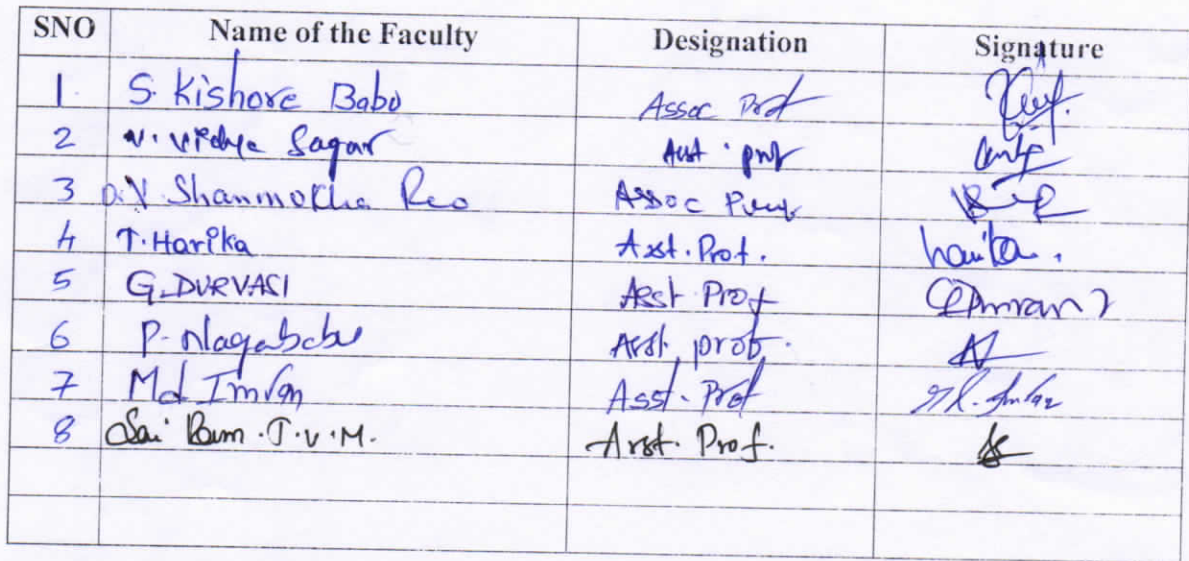 SNO Name of the Faculty Designation Signature
1. S. Kishore Babu Assoc Prof
2 V. Vidya Sagar Asst. prof
3 D.V. Shanmukha Rao Assoc Prof
4 T. Harika Asst. Prof. harika.
5 G. DURVASI Asst Prof
6 P. Nagababu Asst. prof.
7 Md Imran Asst. Prof
8 Sai Ram. T.V.M. Asst. Prof.